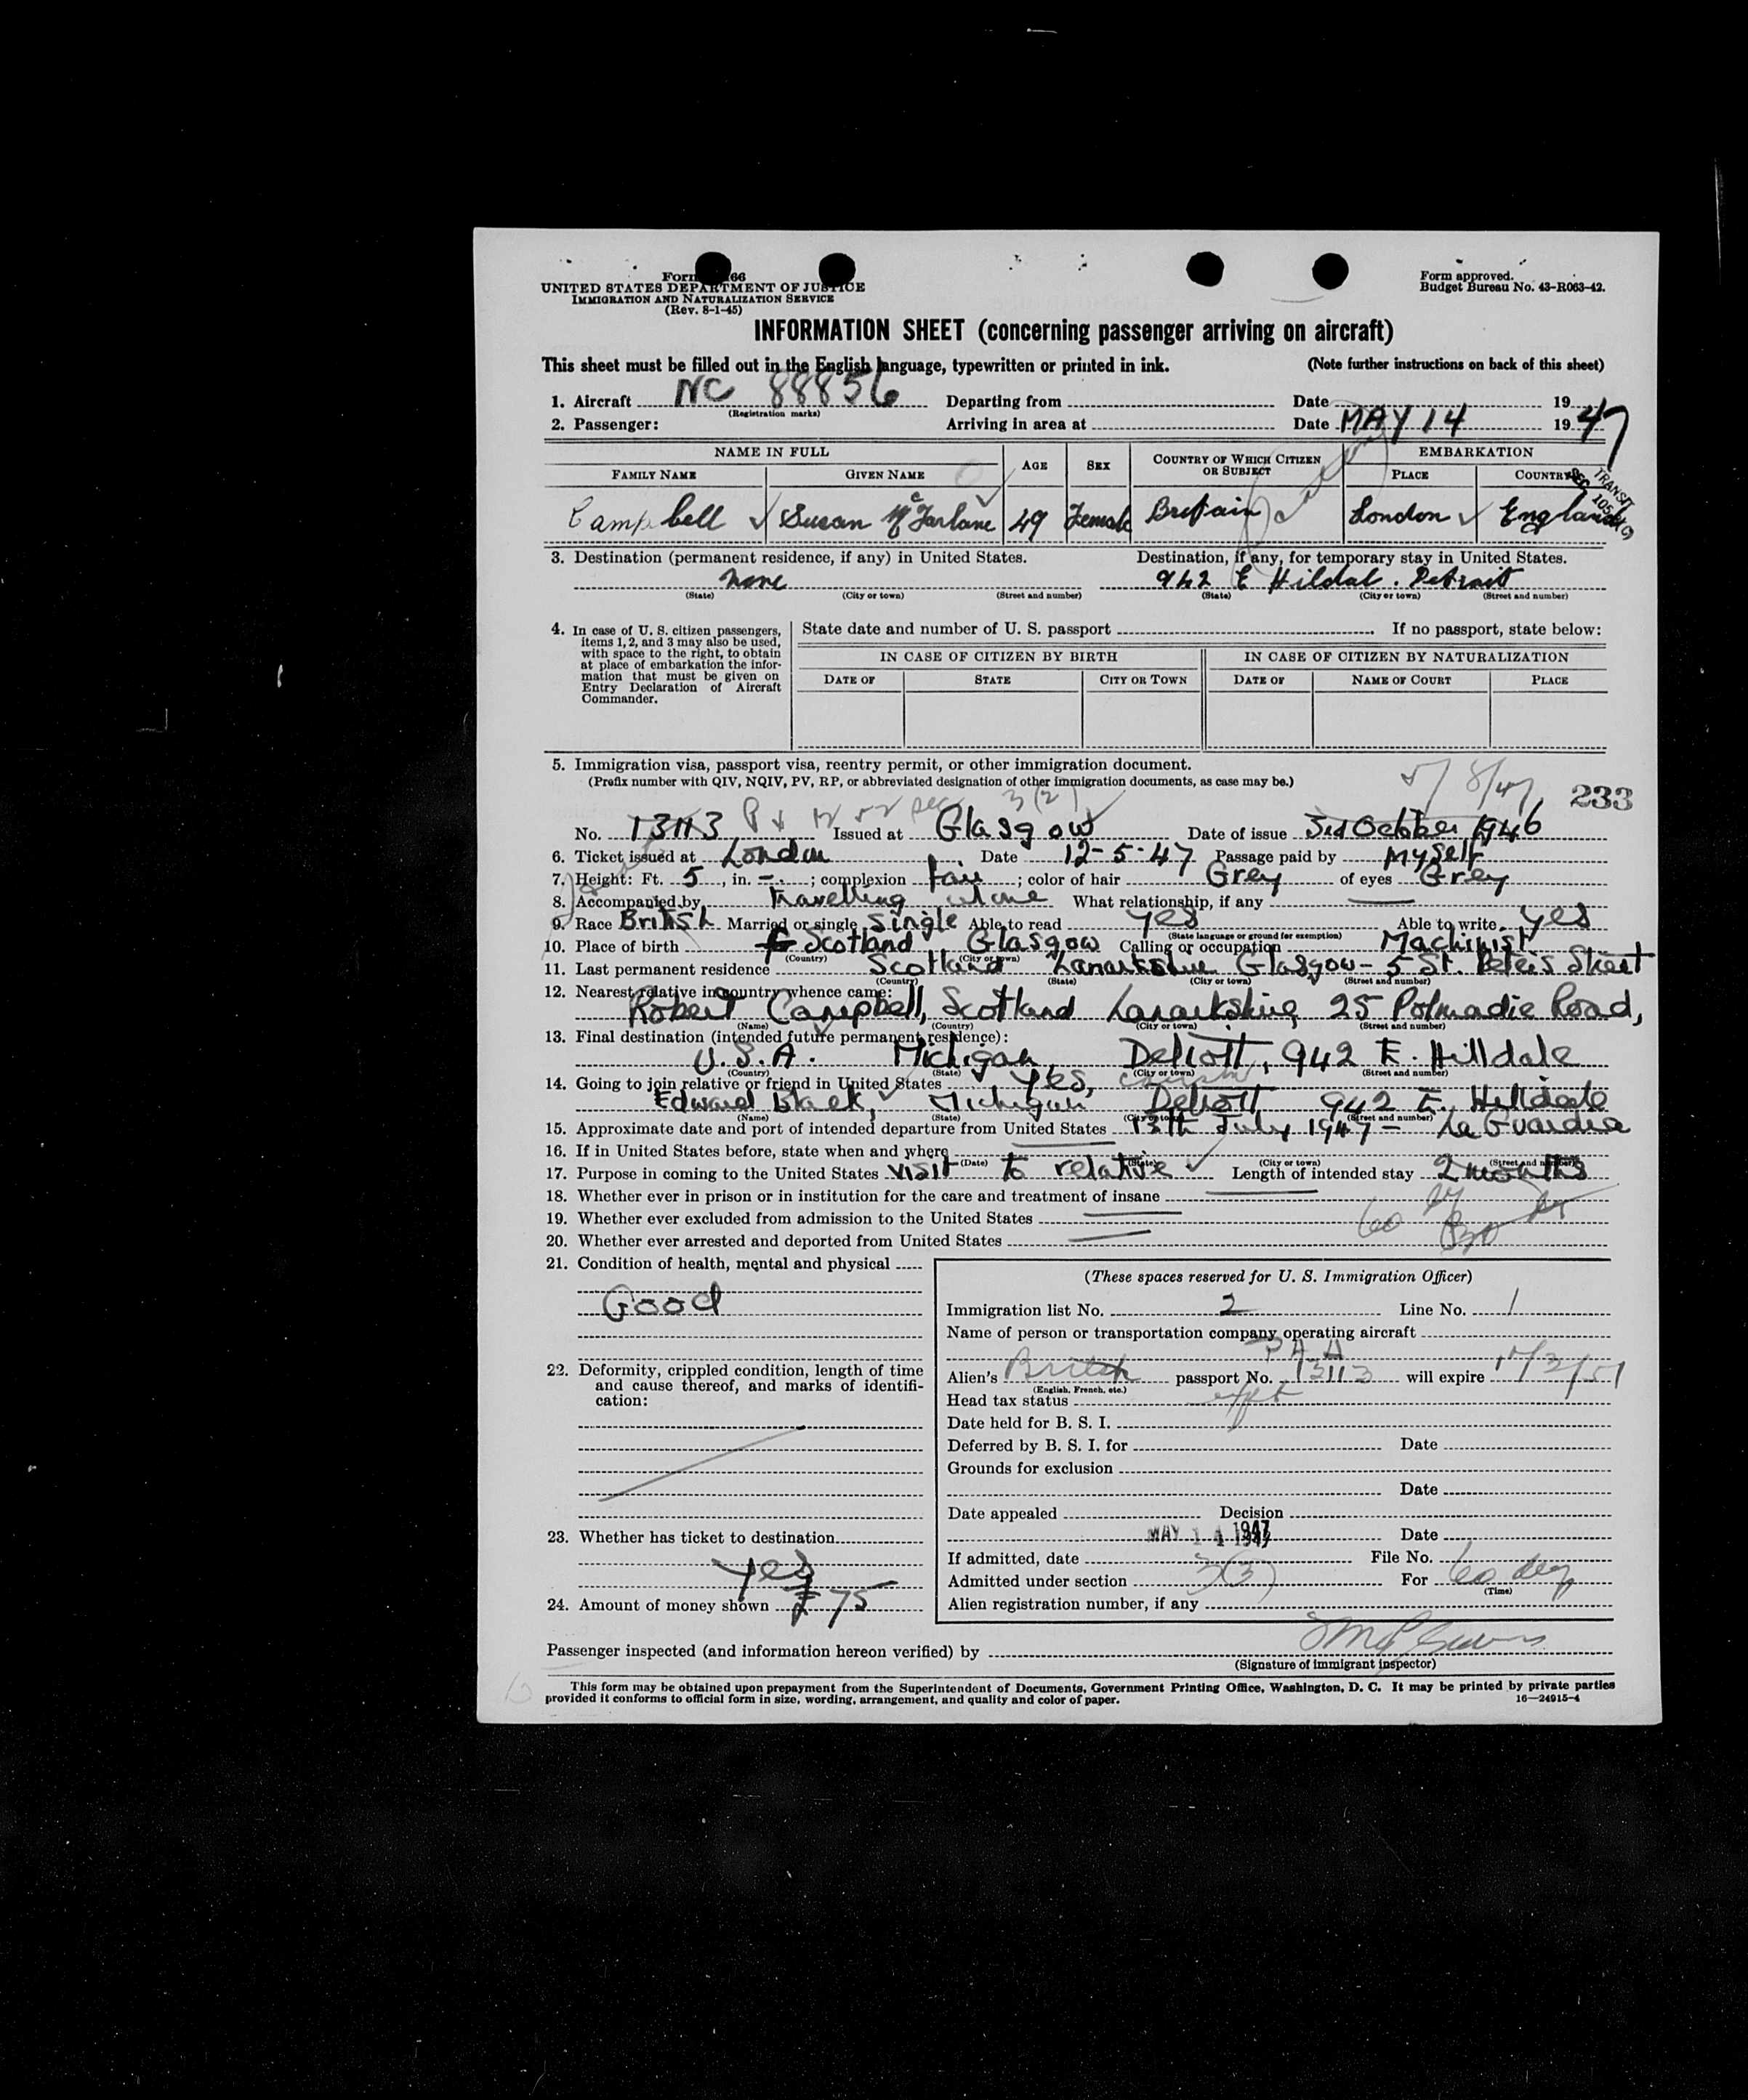 Form 66
UNITED STATES DEPARTMENT OF JUSTICE
IMMIGRATION AND NATURALIZATION SERVICE
(Rev. 8-1-45)
Form approved.
Budget Bureau No. 43-R063-42.
INFORMATION SHEET (concerning passenger arriving on aircraft)
This sheet must be filled out in the English language, typewritten or printed in ink. (Note further instructions on back of this sheet)
1. Aircraft NC 88856 Departing from Date 19
(Registration marks)
2. Passenger: Arriving in area at Date MAY 14 1947
NAME IN FULL AGE SEX COUNTRY OF WHICH CITIZEN OR SUBJECT EMBARKATION
FAMILY NAME GIVEN NAME PLACE COUNTRY
TRANSIT
Campbell Susan McFarlane 49 Female Britain London England
3. Destination (permanent residence, if any) in United States. Destination, if any, for temporary stay in United States.
None 942 E Hildal. Detroit
(State) (City or town) (Street and number) (State) (City or town) (Street and number)
4. In case of U. S. citizen passengers, items 1, 2, and 3 may also be used, with space to the right, to obtain at place of embarkation the information that must be given on Entry Declaration of Aircraft Commander.
State date and number of U. S. passport If no passport, state below:
IN CASE OF CITIZEN BY BIRTH IN CASE OF CITIZEN BY NATURALIZATION
DATE OF STATE CITY OR TOWN DATE OF NAME OF COURT PLACE
5. Immigration visa, passport visa, reentry permit, or other immigration document.
(Prefix number with QIV, NQIV, PV, RP, or abbreviated designation of other immigration documents, as case may be.)
3(2) 5/8/47 233
No. 13113 Issued at Glasgow Date of issue 3rd October 1946
6. Ticket issued at London Date 12-5-47 Passage paid by Myself
7. Height: Ft. 5, in. -; complexion fair; color of hair Grey of eyes Grey
8. Accompanied by Travelling alone What relationship, if any
9. Race British Married or single Single Able to read yes Able to write yes
(State language or ground for exemption)
10. Place of birth Scotland Glasgow Calling or occupation Machinist
(Country) (City or town)
11. Last permanent residence Scotland Lanarkshire Glasgow - 5 St. Peter's Street
(Country) (State) (City or town) (Street and number)
12. Nearest relative in country whence came:
Robert Campbell, Scotland Lanarkshire, 25 Polmadie Road,
(Name) (Country) (City or town) (Street and number)
13. Final destination (intended future permanent residence):
U.S.A. Michigan Detroit, 942 E. Hilldale
(Country) (State) (City or town) (Street and number)
14. Going to join relative or friend in United States Yes, cousin
Edward Black, Michigan Detroit 942 E. Hilldale
(Name) (State) (City or town) (Street and number)
15. Approximate date and port of intended departure from United States 13th July 1947 - La Guardia
16. If in United States before, state when and where
(Date) (State) (City or town) (Street and number)
17. Purpose in coming to the United States visit to relative Length of intended stay 2 months
18. Whether ever in prison or in institution for the care and treatment of insane
19. Whether ever excluded from admission to the United States 60
20. Whether ever arrested and deported from United States
21. Condition of health, mental and physical
Good
22. Deformity, crippled condition, length of time and cause thereof, and marks of identification:
23. Whether has ticket to destination
yes
24. Amount of money shown £75
(These spaces reserved for U. S. Immigration Officer)
Immigration list No. 2 Line No. 1
Name of person or transportation company operating aircraft
PAA
Alien's British passport No. 13113 will expire
(English, French, etc.)
Head tax status
Date held for B. S. I.
Deferred by B. S. I. for Date
Grounds for exclusion
Date
Date appealed Decision
MAY 14 1947 Date
If admitted, date File No.
Admitted under section 3(2) For 60 days
(Time)
Alien registration number, if any
Passenger inspected (and information hereon verified) by
(Signature of immigrant inspector)
This form may be obtained upon prepayment from the Superintendent of Documents, Government Printing Office, Washington, D. C. It may be printed by private parties
provided it conforms to official form in size, wording, arrangement, and quality and color of paper. 16—24915-4